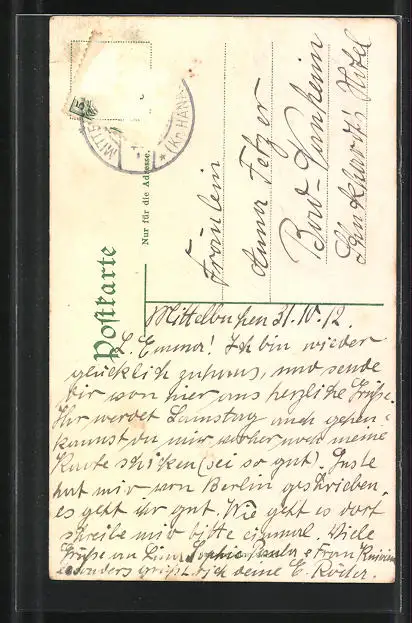 Postkarte
Nur für die Adresse.
MITTELB
(Kr. HANA
Fräulein
Anna Felzer
Bad-Nauheim
Hotel
Mittelbuchen 31.IV.12.
L. Emma! Ich bin wieder
glücklich zuhaus, und sende
dir von hier aus herzliche Grüße.
Ihr werdet Samstag auch gehen
kannst du mir vorher noch meine
Karte schicken (sei so gut). Guste
hat mir von Berlin geschrieben
es geht ihr gut. Wie geht es dort
schreibe mir bitte einmal. Viele
Grüße an Lina, Sophie, Paula & Frau
besonders grüßt dich deine E. Röder.